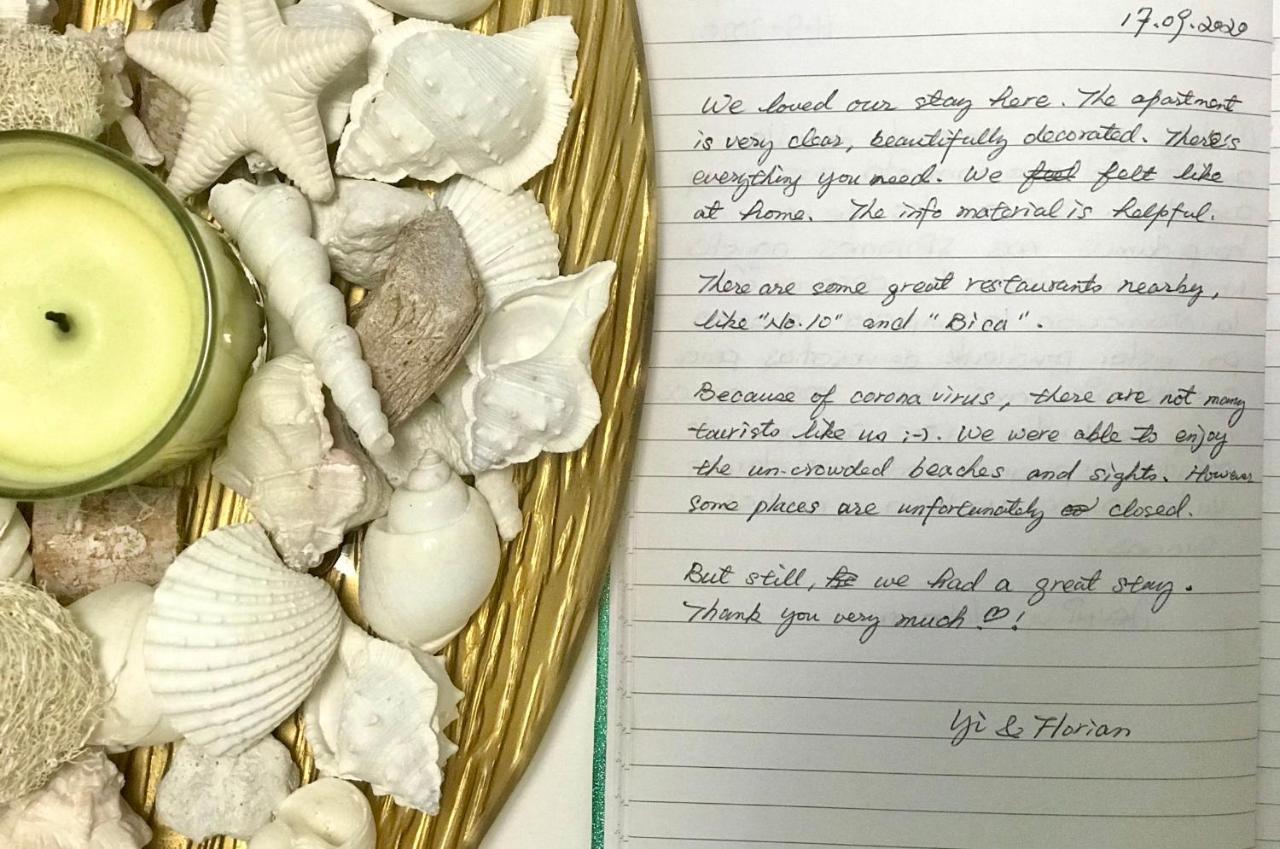 17.09.2020
We loved our stay here. The apartment
is very clear, beautifully decorated. There's
everything you need. We feel felt like
at home. The info material is helpful.
There are some great restaurants nearby,
like "No.10" and "Bica".
Because of corona virus, there are not many
tourists like us ;-). We were able to enjoy
the un-crowded beaches and sights. However
some places are unfortunately closed.
But still, we had a great stay.
Thank you very much ♡!
Yi & Florian